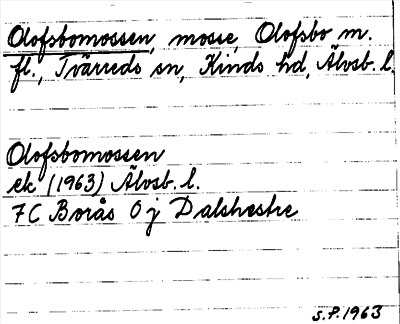 Olofsbomossen, mosse, Olofsbo m.
fl., Tvärreds sn, Kinds hd, Älvsb. l.
Olofsbomossen
ek (1963) Älvsb. l.
7C Borås 0 j Dalshestre
S.P. 1963